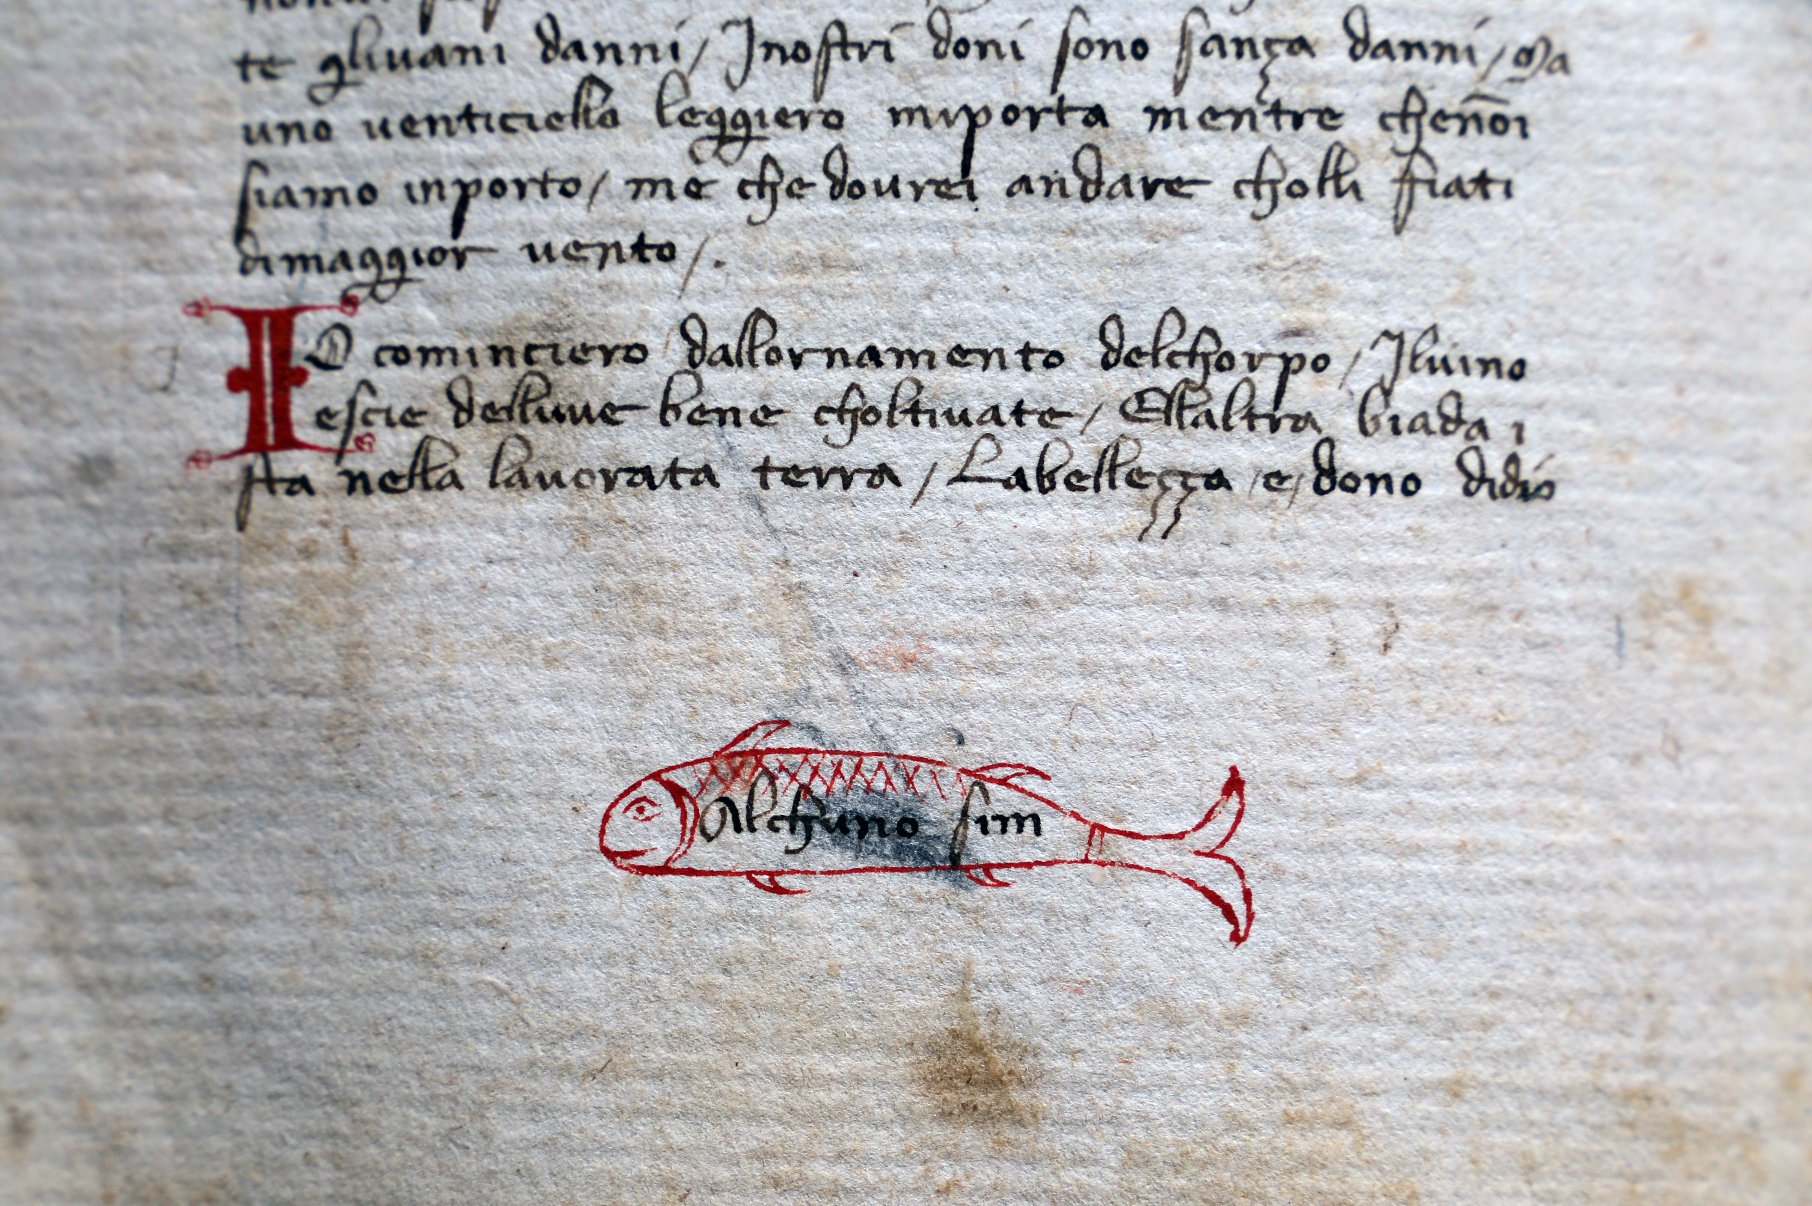 te gluuani danni / Inostri doni sono sança danni / Ma
uno venticiello leggiero miporta mentre chenōi
siamo inporto / me che dovrei andare cholli fiati
dimaggior vento /.
IO cominciero dallornamento delchorpo / Iluino
escie delluve bene choltivate / Ellaltra biada i
sta nella lavorata terra / Labelleçça e dono didio
Alchuno sim